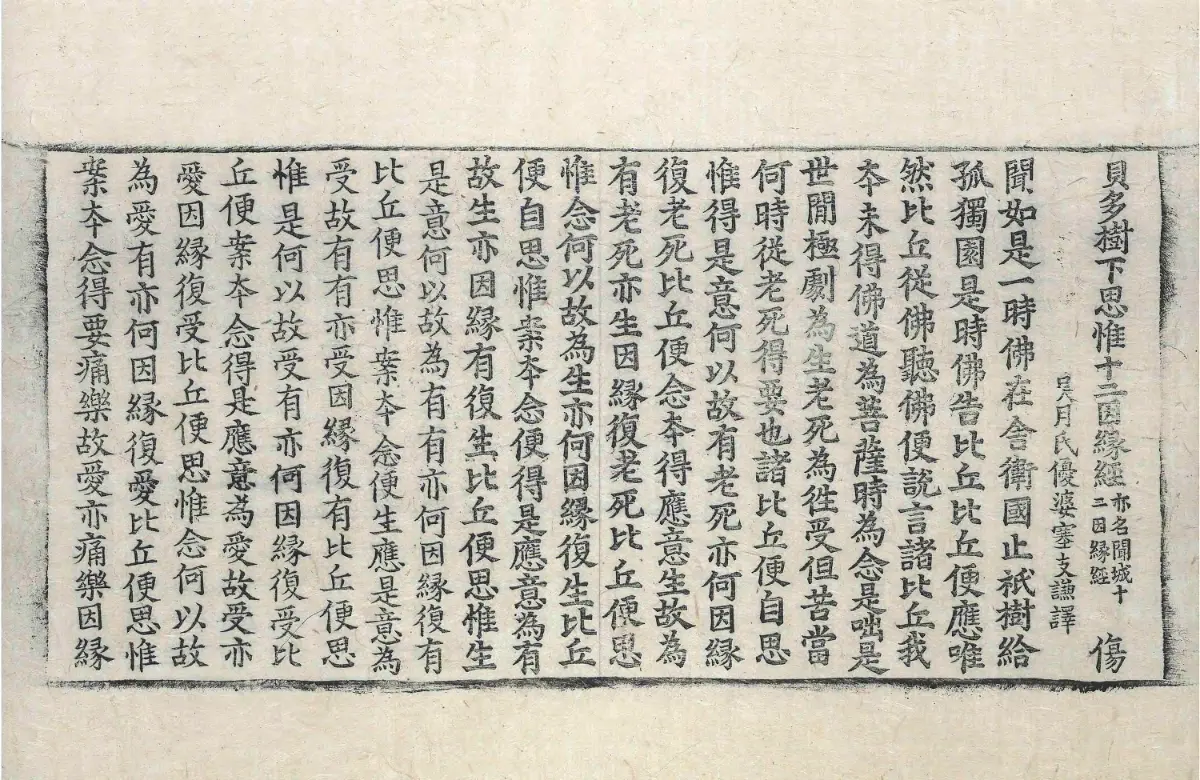 貝多樹下思惟十二因緣經 亦名聞城十二因緣經 傷
吳月氏優婆塞支謙譯
聞如是一時佛在舍衛國止祇樹給
孤獨園是時佛告比丘比丘便應唯
然比丘從佛聽佛便說言諸比丘我
夲未得佛道為菩薩時為念是咄是
世閒極劇為生老死為徃受但苦當
何時從老死得要也諸比丘便自思
惟得是意何以故有老死亦何因緣
復老死比丘便念夲得應意生故為
有老死亦生因緣復老死比丘便思
惟念何以故為生亦何因緣復生比丘
便自思惟案夲念便得是應意為有
故生亦因緣有復生比丘便思惟生
是意何以故為有有亦何因緣復有
比丘便思惟案夲念便生應是意為
受故有有亦受因緣復有比丘便思
惟是何以故受有亦何因緣復受比
丘便案夲念得是應意為愛故受亦
愛因緣復受比丘便思惟念何以故
為愛有亦何因緣復愛比丘便思惟
案夲念得要痛樂故愛亦痛樂因緣